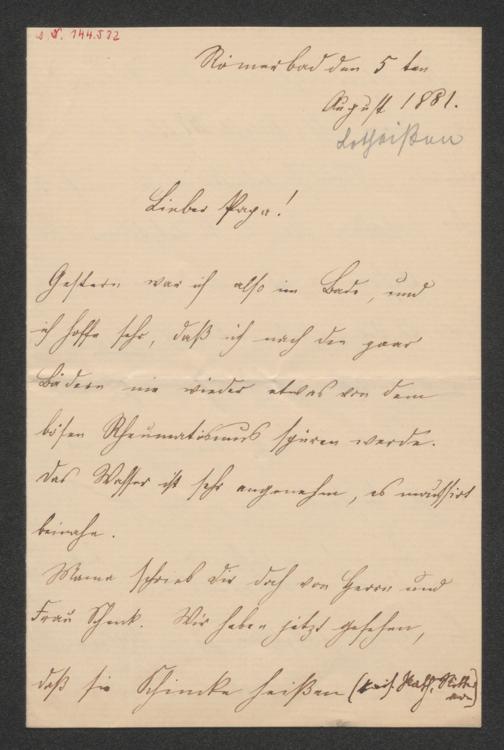 J. N. 144.572
Römerbad den 5ten
August 1881.
Lotheißen
Lieber Papa!
Gestern war ich also im Bade, und
ich hoffe sehr, daß ich nach den paar
Bädern nie wieder etwas von dem
bösen Rheumatismus spüren werde.
Das Wasser ist sehr angenehm, es moussirt
beinahe.
Mama schrieb Dir doch von Herrn und
Frau Schenk. Wir haben jetzt gesehen,
daß sie Schincke heißen